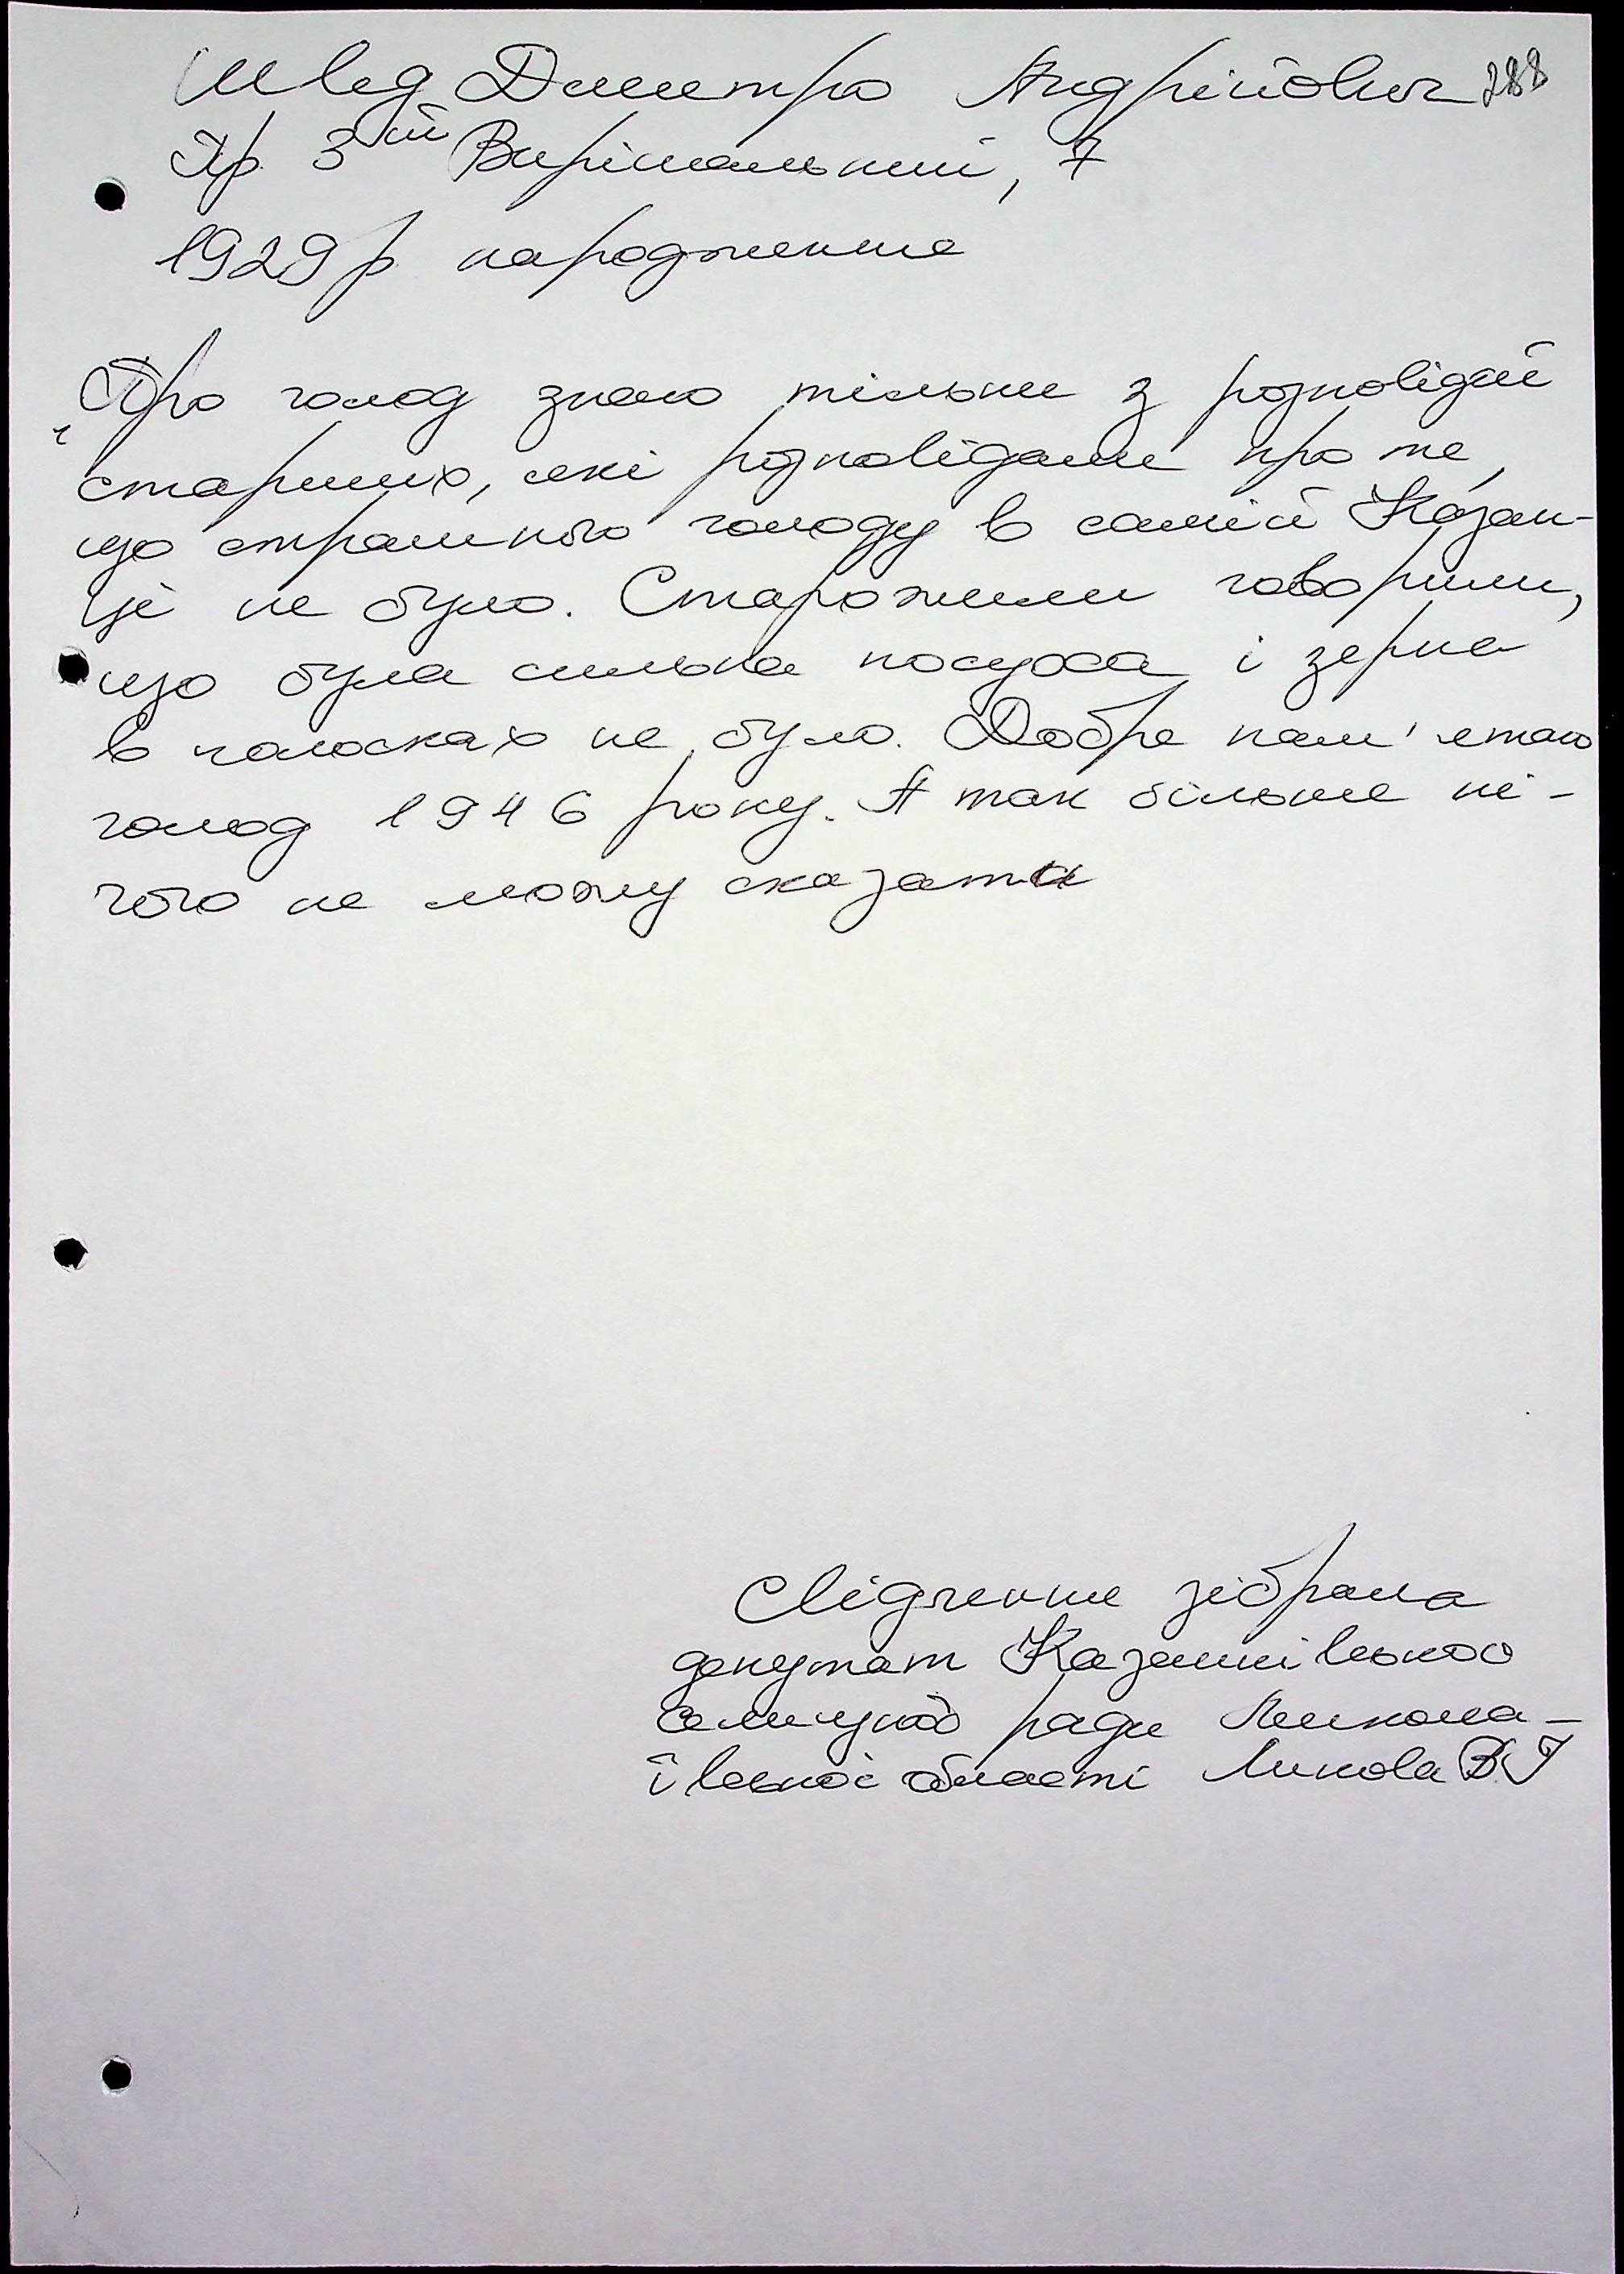 Швед Дмитро Андрійович 288
Пр. 3ій Вирішальний, 7
1929 р народження
Про голод знаю тільки з розповідей
старших, які розповідали про те,
що страшного голоду в самій Козан-
ці не було. Старожили говорили,
що була сильна посуха і зерна
в колосках не було. Добре пам'ятаю
голод 1946 року. А так більше ні-
чого не можу сказати
Свідчення зібрала
депутат Казанківської
селищної ради Микола-
ївської області Линова В.Г